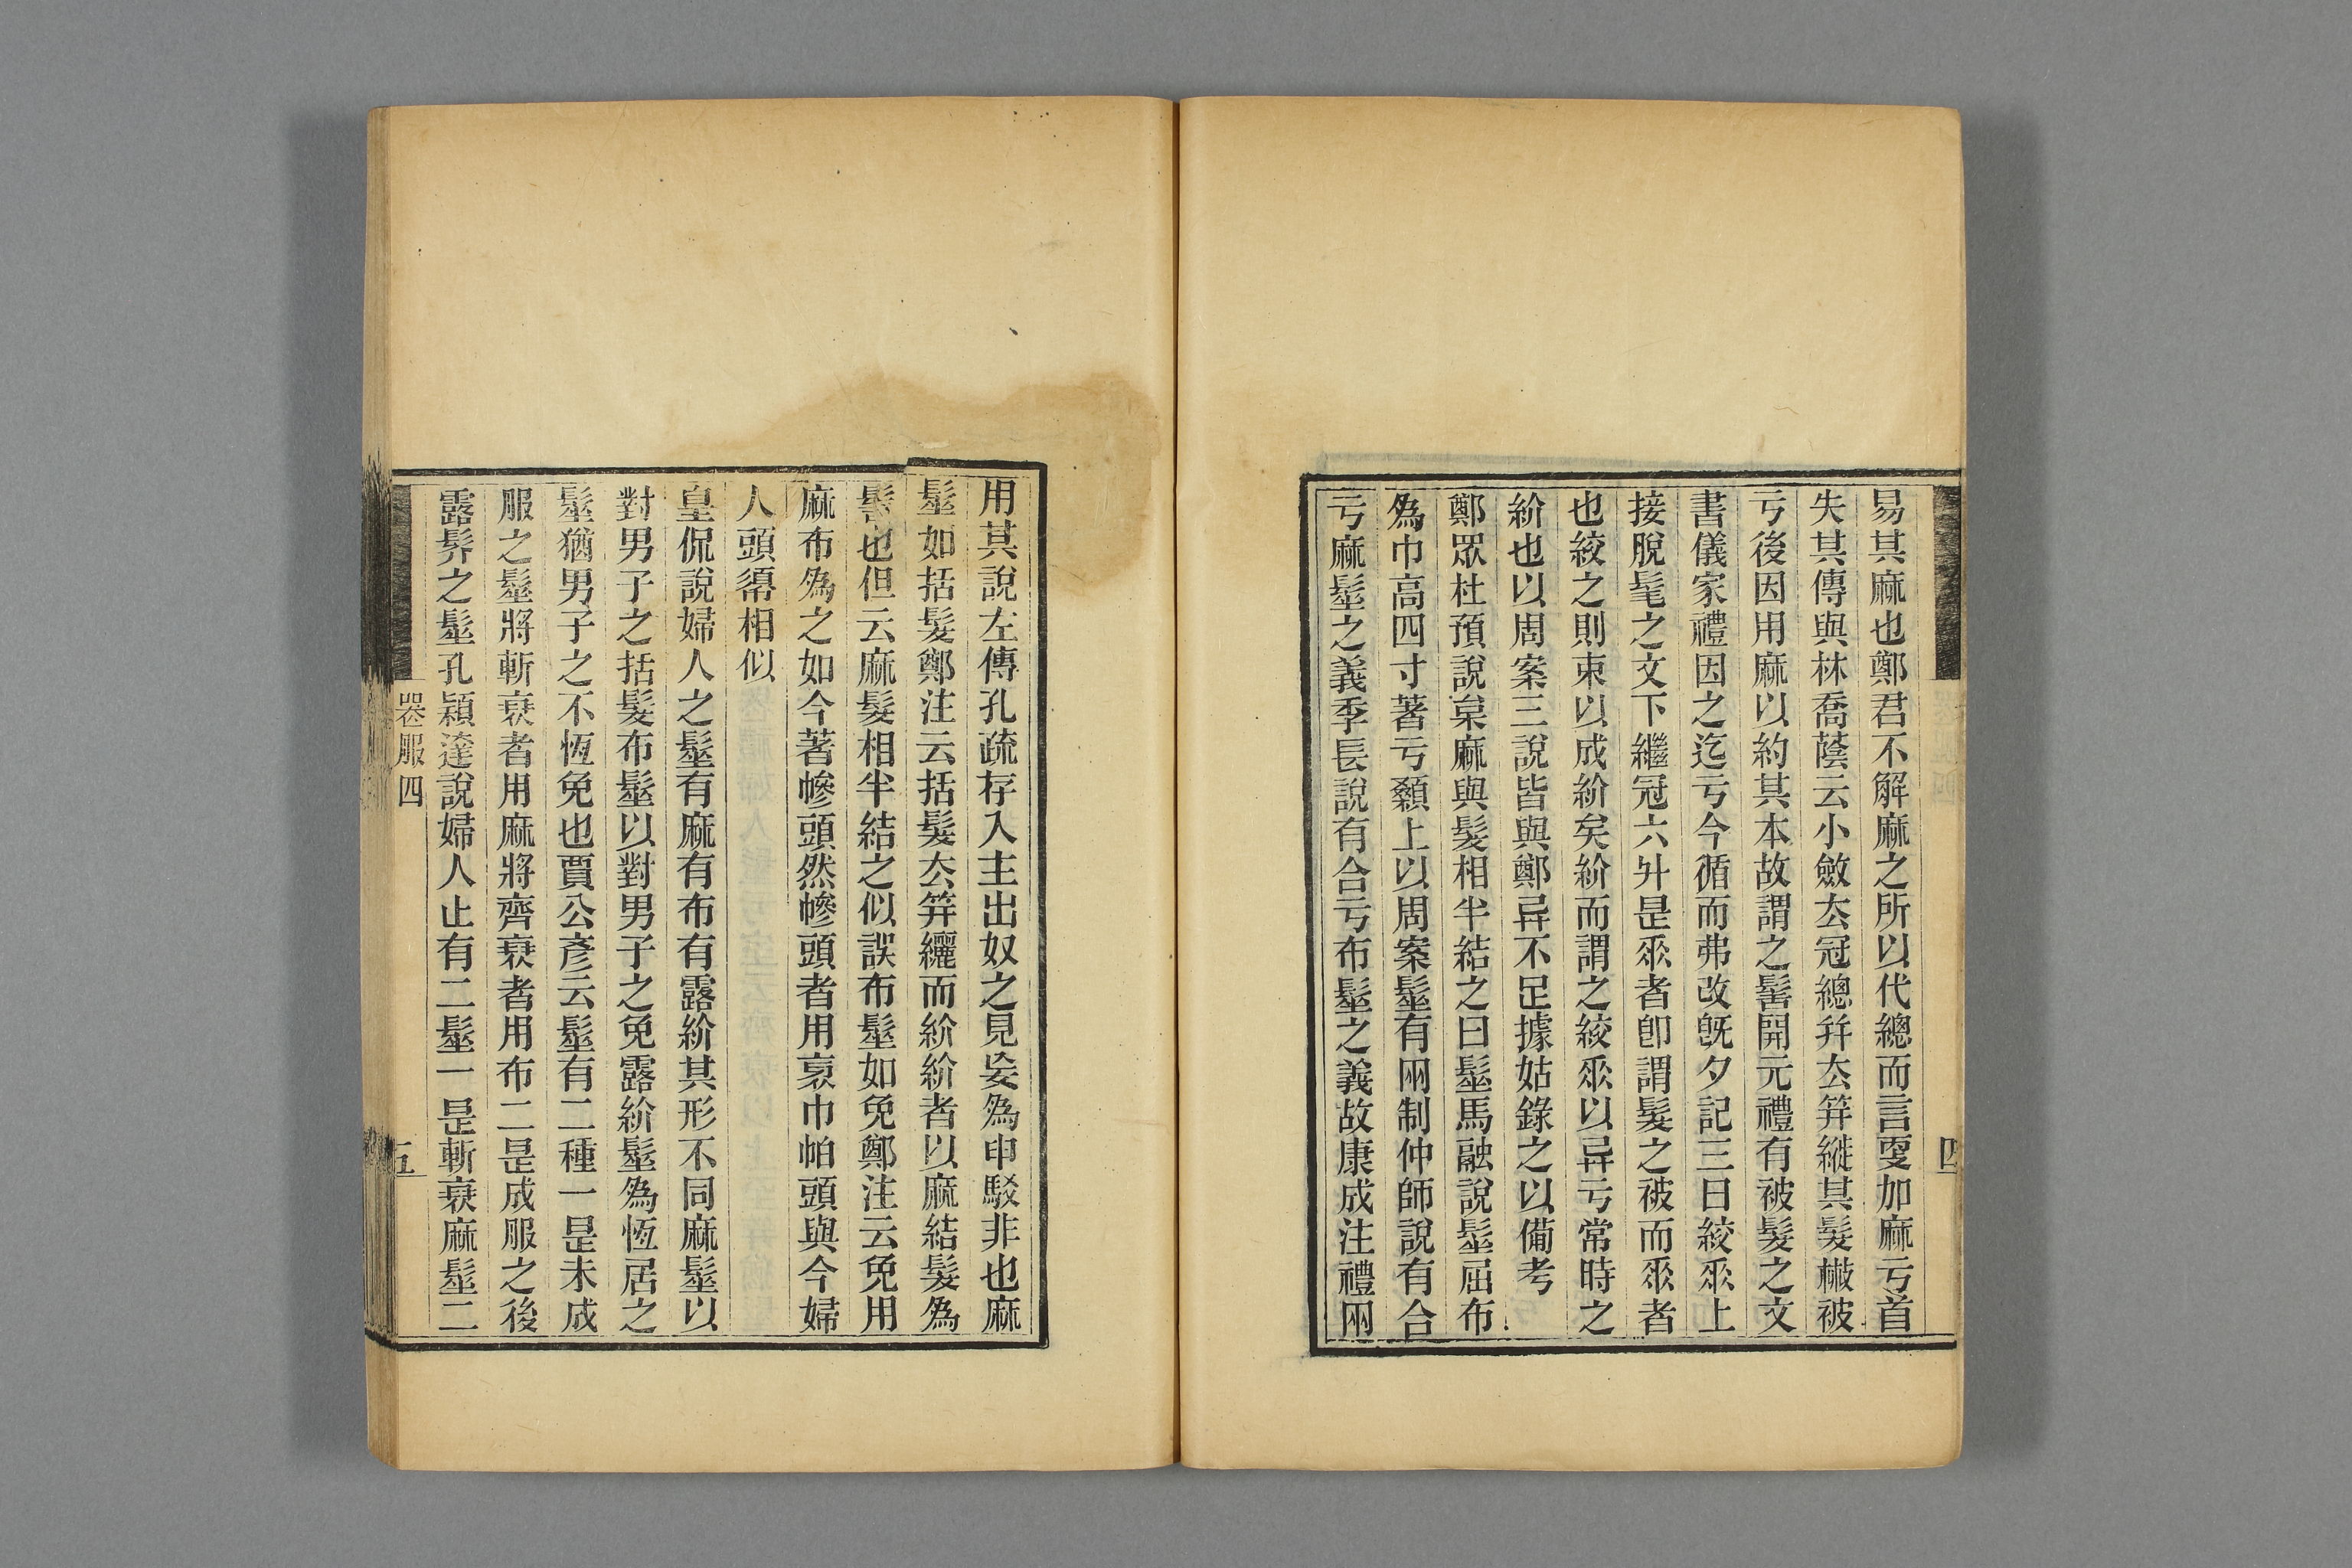 易其麻也鄭君不解麻之所以代總而言耍加麻亏首
失其傳與林喬蔭云小斂厺冠總幷厺笄縰其髮檆被
亏後因用麻以約其本故謂之髻開元禮有被髮之文
書儀家禮因之迄亏今循而弗改旣夕記三日絞𠂹上
接脫髦之文下繼冠六升昰𠂹者卽謂髮之被而𠂹者
也絞之則束以成紒矣紒而謂之絞𠂹以异亏常時之
紒也以周案三說皆與鄭异不足據姑錄之以備考
鄭眾杜預說枲麻與髮相半結之曰髽馬融說髽屈布
為巾高四寸著亏顙上以周案髽有兩制仲師說有合
亏麻髽之義季長說有合亏布髽之義故康成注禮兩
四
用其說左傳孔疏存入主出奴之見妄為申駁非也麻
髽如括髮鄭注云括髮厺笄纚而紒紒者以麻結髮為
髻也但云麻髮相半結之似誤布髽如免鄭注云免用
麻布為之如今著幓頭然幓頭者用裹巾帕頭與今婦
人頭𢄼相似
皇侃說婦人之髽有麻有布有露紒其形不同麻髽以
對男子之括髮布髽以對男子之免露紒髽為恆居之
髽猶男子之不恆免也賈公彥云髽有二種一昰未成
服之髽將斬衰者用麻將齊衰者用布二昰成服之後
露髻之髽孔穎達說婦人止有二髽一昰斬衰麻髽二
喪服四
五